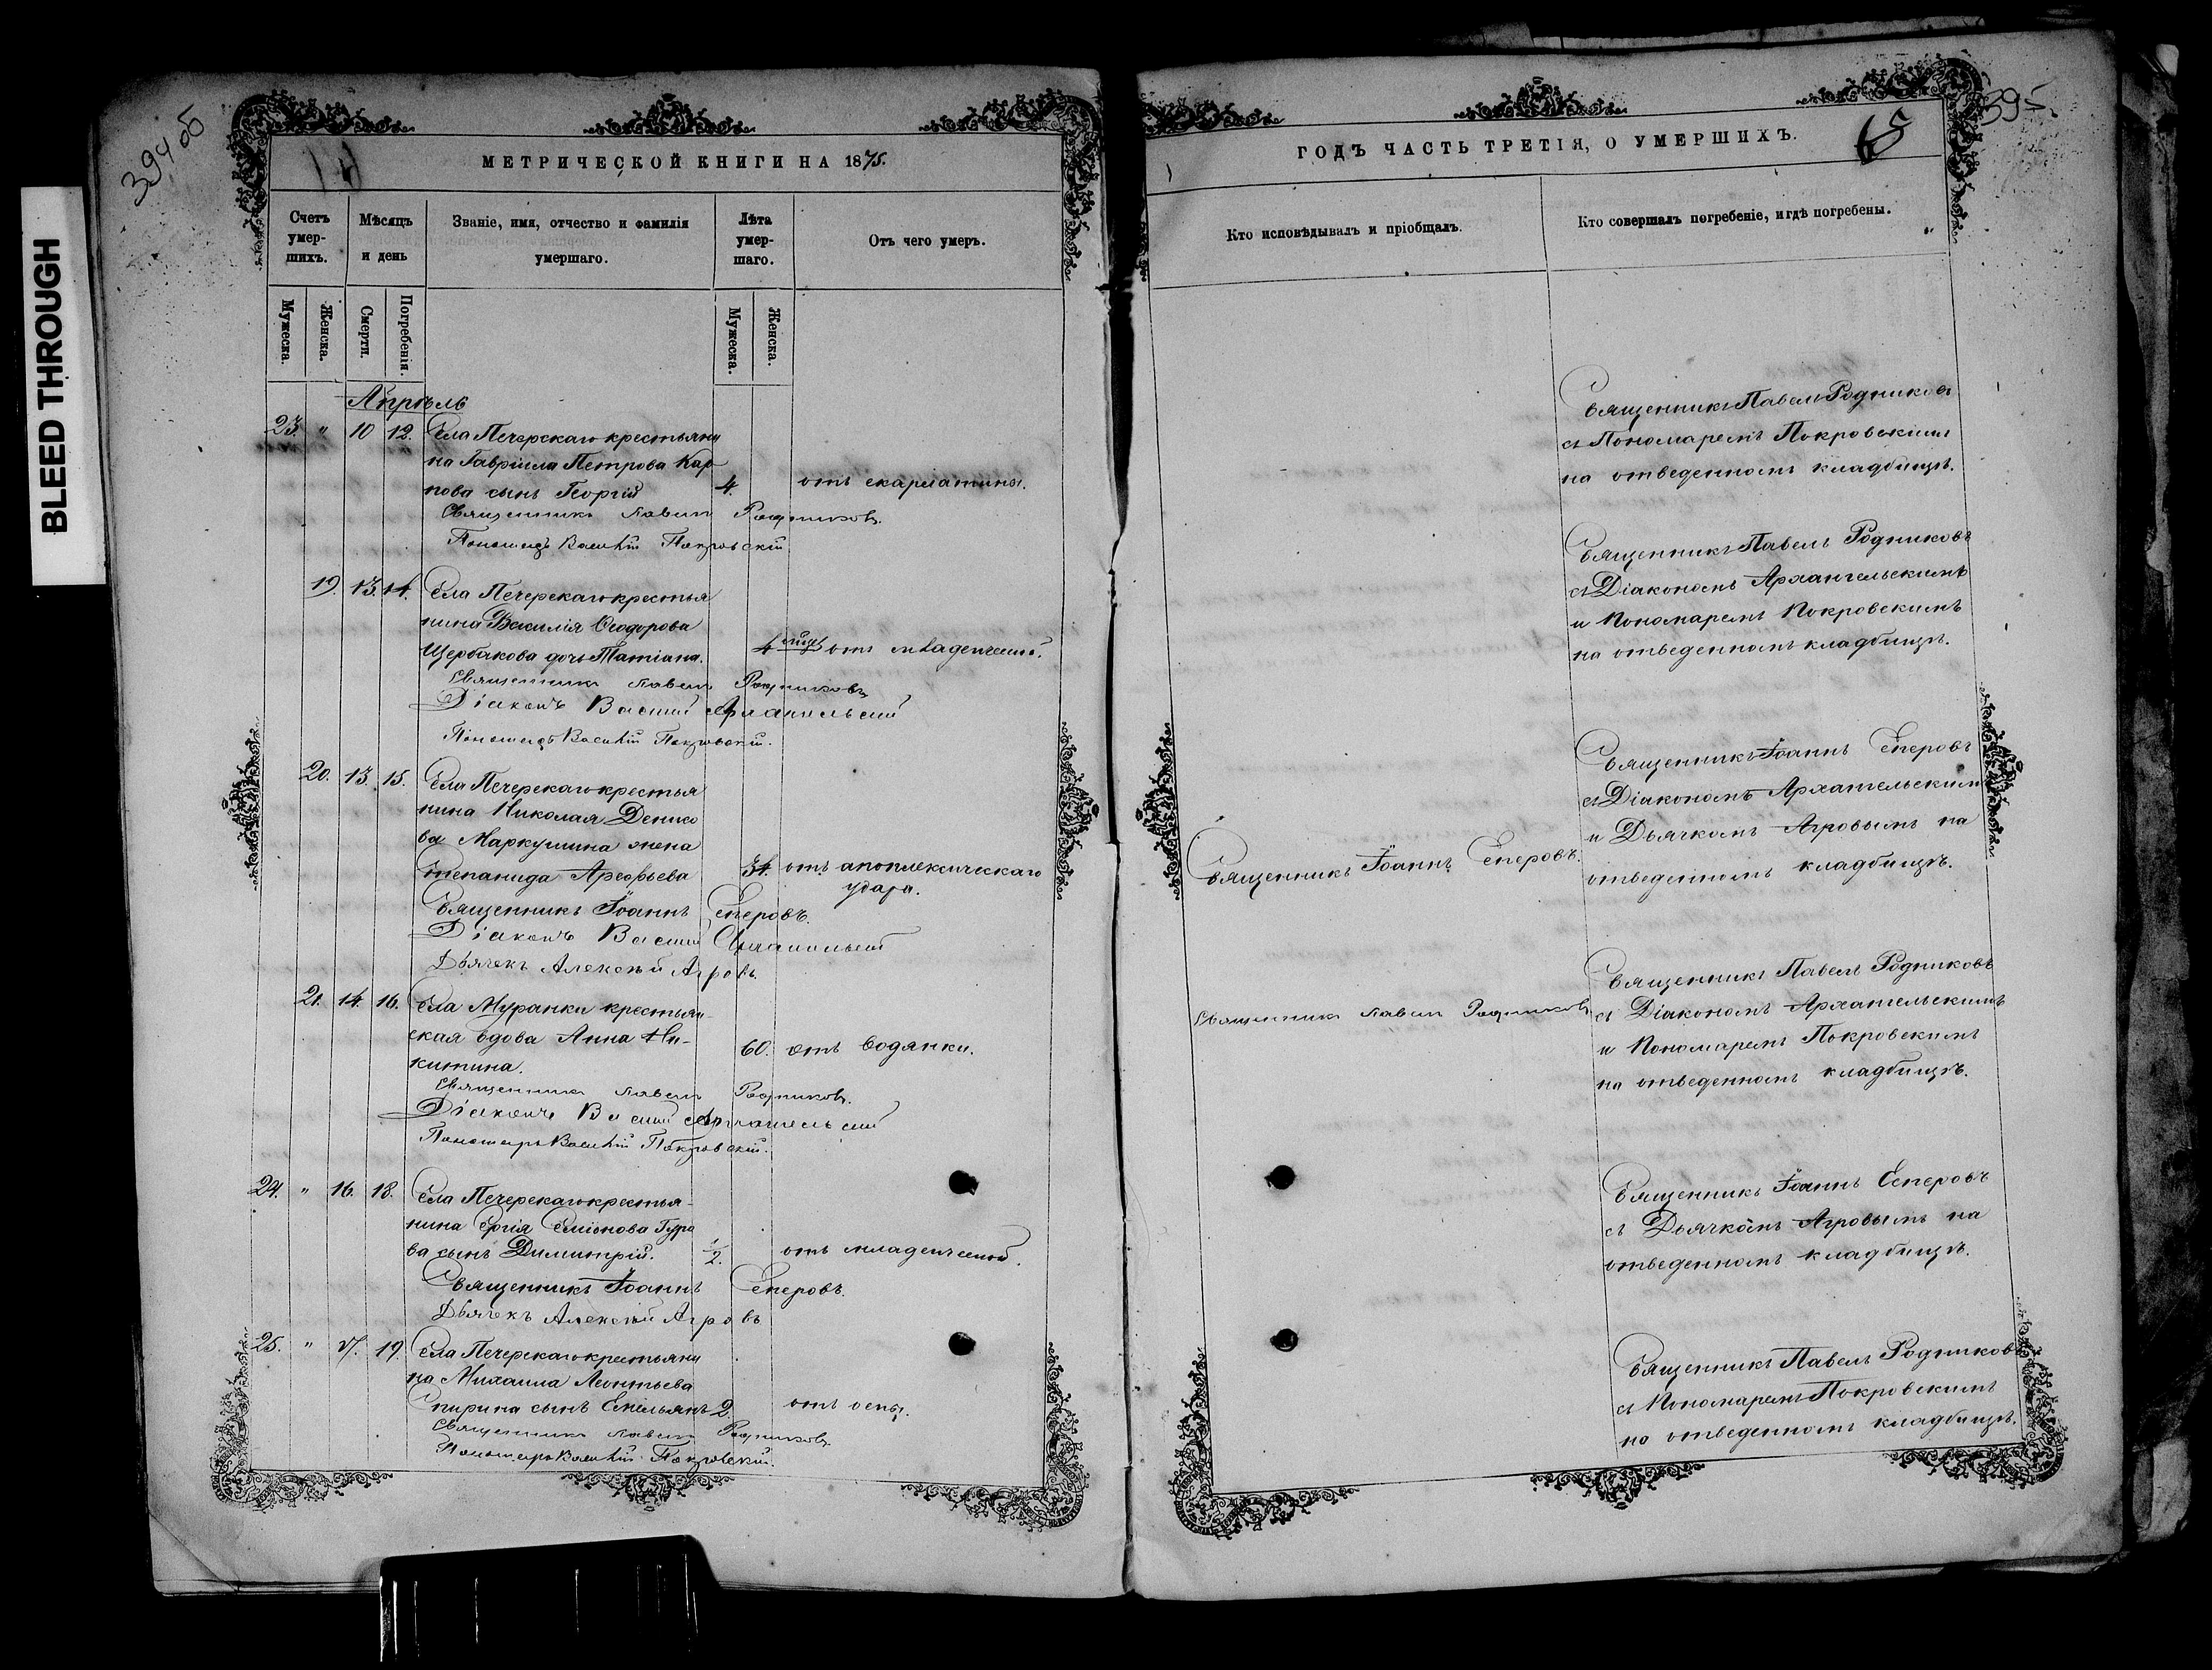 BLEED THROUGH
394 об
МЕТРИЧЕСКОЙ КНИГИ НА 1875.
Счетъ умер-шихъ.
Мѣсяцъ и день
Званіе, имя, отчество и фамилія умершаго.
Лѣта умер-шаго.
Отъ чего умеръ.
Мужеска.
Женска.
Смерти.
Погребенія.
Мужеска.
Женска.
Апрѣль
23. " 10 12. Села Печерскаго крестьяни
на Гавріила Петрова Кар
пова сынъ Георгій 4. отъ скарлатины.
Священникъ Павелъ Родниковъ.
Пономарь Василій Покровскій
19. 13. 14. Села Печерскаго крестья
нина Василія Ѳеодорова
Щербакова дочь Татіана. 4 отъ младенческой.
Священникъ Павелъ Родниковъ
Діаконъ Василій Архангельскій
Пономарь Василій Покровскій.
20. 13. 15. Села Печерскаго крестья
нина Николая Денисо
ва Маркушина жена
Степанида Арефьева 34. отъ апоплексическаго
удара.
Священникъ Іоаннъ Сперовъ.
Діаконъ Василій Архангельскій
Дьячекъ Алексѣй Агровъ
21. 14. 16. Села Муранки крестьян-
ская вдова Анна Ни-
китина. 60. отъ водянки.
Священникъ Павелъ Родниковъ.
Діаконъ Василій Архангельскій
Пономарь Василій Покровскій.
24. " 16. 18. Села Печерскаго крестья-
нина Сергія Симіонова Гура
ва сынъ Димитрій. 1/2. отъ младенческой.
Священникъ Іоаннъ Сперовъ.
Дьячекъ Алексѣй Агровъ
25. " 17. 19. Села Печерскаго крестьяни
на Михаила Леонтьева
Спирина сынъ Емельянъ 2. отъ оспы.
Священникъ Павелъ Родниковъ
Пономарь Василій Покровскій.
395
65
ГОДЪ ЧАСТЬ ТРЕТІЯ, О УМЕРШИХЪ.
Кто исповѣдывалъ и пріобщалъ.
Кто совершалъ погребеніе, и гдѣ погребены.
Священникъ Павелъ Родниковъ
съ Пономаремъ Покровскимъ
на отведенномъ кладбищѣ.
Священникъ Павелъ Родниковъ
съ Діакономъ Архангельскимъ
и Пономаремъ Покровскимъ
на отведенномъ кладбищѣ.
Священникъ Іоаннъ Сперовъ
съ Діакономъ Архангельскимъ
и Дьячкомъ Агровымъ на
отведенномъ кладбищѣ.
Священникъ Іоаннъ Сперовъ.
Священникъ Павелъ Родниковъ
съ Діакономъ Архангельскимъ
и Пономаремъ Покровскимъ
на отведенномъ кладбищѣ.
Священникъ Павелъ Родниковъ
Священникъ Іоаннъ Сперовъ
съ Дьячкомъ Агровымъ на
отведенномъ кладбищѣ.
Священникъ Павелъ Родниковъ
съ Пономаремъ Покровскимъ
на отведенномъ кладбищѣ.